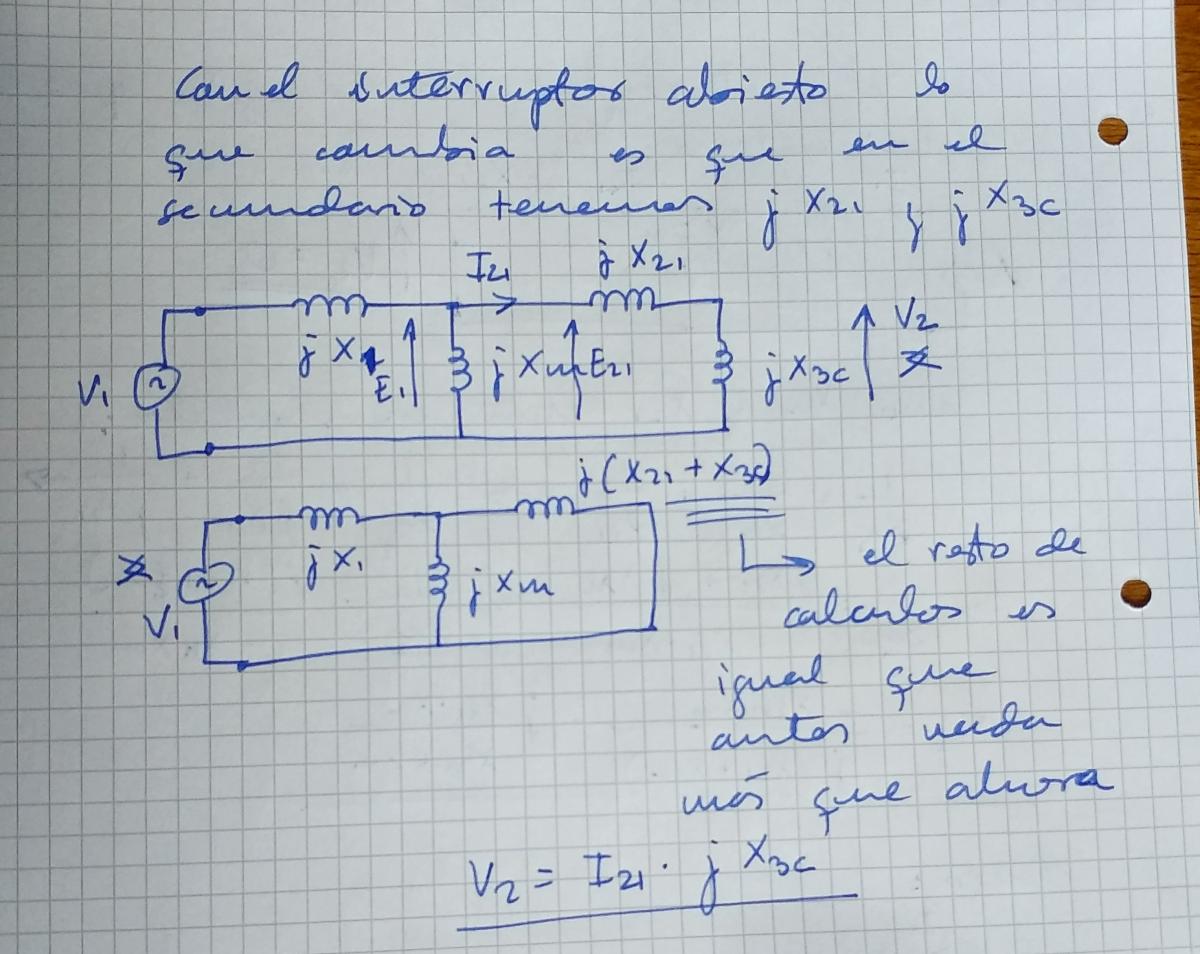 Con el interruptor abierto lo
que cambia es que en el
secundario tenemos j X21 y j X3c
I21 j X21
V1 j X1 E1 j Xm E21 j X3c V2
j (X21 + X3c)
V1 j X1 j Xm
el resto de
calculos es
igual que
antes nada
más que ahora
V2 = I21 · j X3c